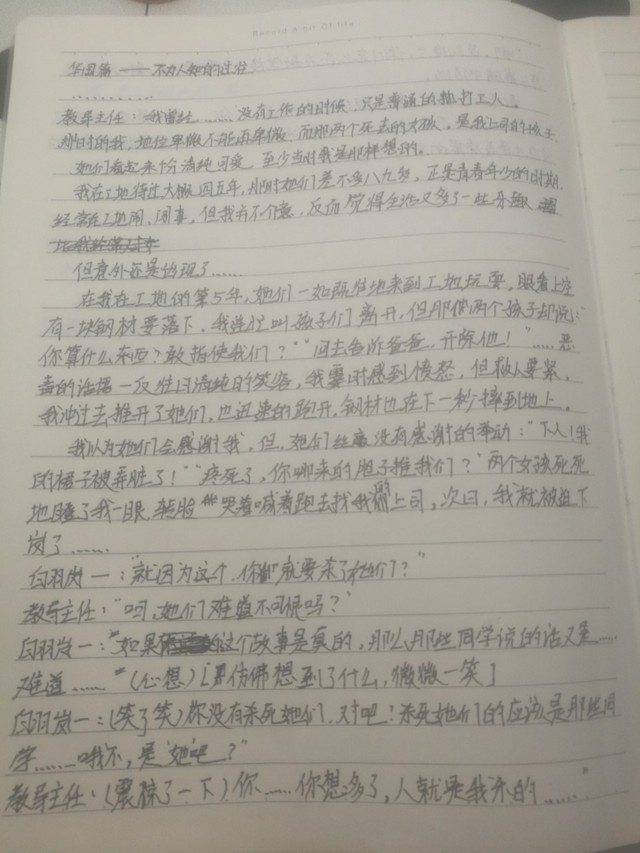 Record A bit Of life
华丑篇 —— 不为人知的过往
…………
教导主任：我曾经……没有工作的时候，只是普通的独打工人，
那时的我，地位卑微不能再卑微，而那两个死去的女孩，是我上司的孩子
她们看起来十分清纯可爱，至少当时我是那样想的。
我在工地待过大概四五年，那时她们差不多八九岁，正是青春年少的时期，
经常在工地闹、闯事，但我并不介意，反而觉得生活又多了一些乐趣
但意外还是出现了……
在我在工地的第5年，她们一如既往地来到工地玩耍，眼看上空
有一块钢材要落下，我连忙叫孩子们离开，但那两个孩子却说："
你算什么东西？敢指使我们？""回去告诉爸爸，开除他！"……恶
毒的话语一反往日清纯的笑容，我霎时感到愤怒，但救人要紧，
我冲过去推开了她们，也迅速的跑开，钢材也在下一秒摔到地上。
我以为她们会感谢我，但，她们丝毫没有感谢的举动："下人！我
的裙子被弄脏了！""疼死了，你哪来的胆子推我们？"两个女孩死死
地瞪了我一眼，哭着喊着跑去找我的上司，次日，我就被迫下
岗了……
白羽岚一："就因为这个，你就要杀了她们？"
教导主任："呵，她们难道不可恨吗？"
白羽岚一："如果这个故事是真的，那么，那些同学说的话又是……
难道……"（心想）[仿佛想到了什么，微微一笑]
白羽岚一：（笑了笑）你没有杀死她们，对吧？杀死她们的应该是那些同
学……哦不，是"她"吧？"
教导主任：（震惊了一下）你……你想多了，人就是我杀的……"